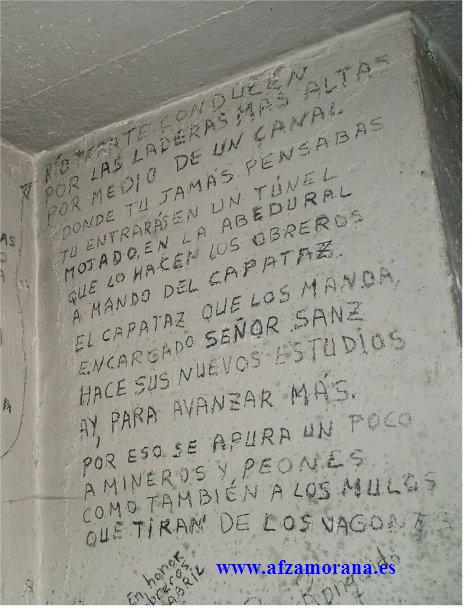 RÍO TERA TE CONDUCEN
POR LAS LADERAS MAS ALTAS
POR MEDIO DE UN CANAL
DONDE TU JAMÁS PENSABAS
TU ENTRARÁS EN UN TÚNEL
MOJADO, EN LA ABEDURAL
QUE LO HACEN LOS OBREROS
A MANDO DEL CAPATAZ.
EL CAPATAZ QUE LOS MANDA,
ENCARGADO SEÑOR SANZ
HACE SUS NUEVOS ESTUDIOS
AY, PARA AVANZAR MÁS.
POR ESO SE APURA UN POCO
A MINEROS Y PEONES
COMO TAMBIÉN A LOS MULOS
QUE TIRAN DE LOS
En honor
ABRIL
www.afzamorana.es